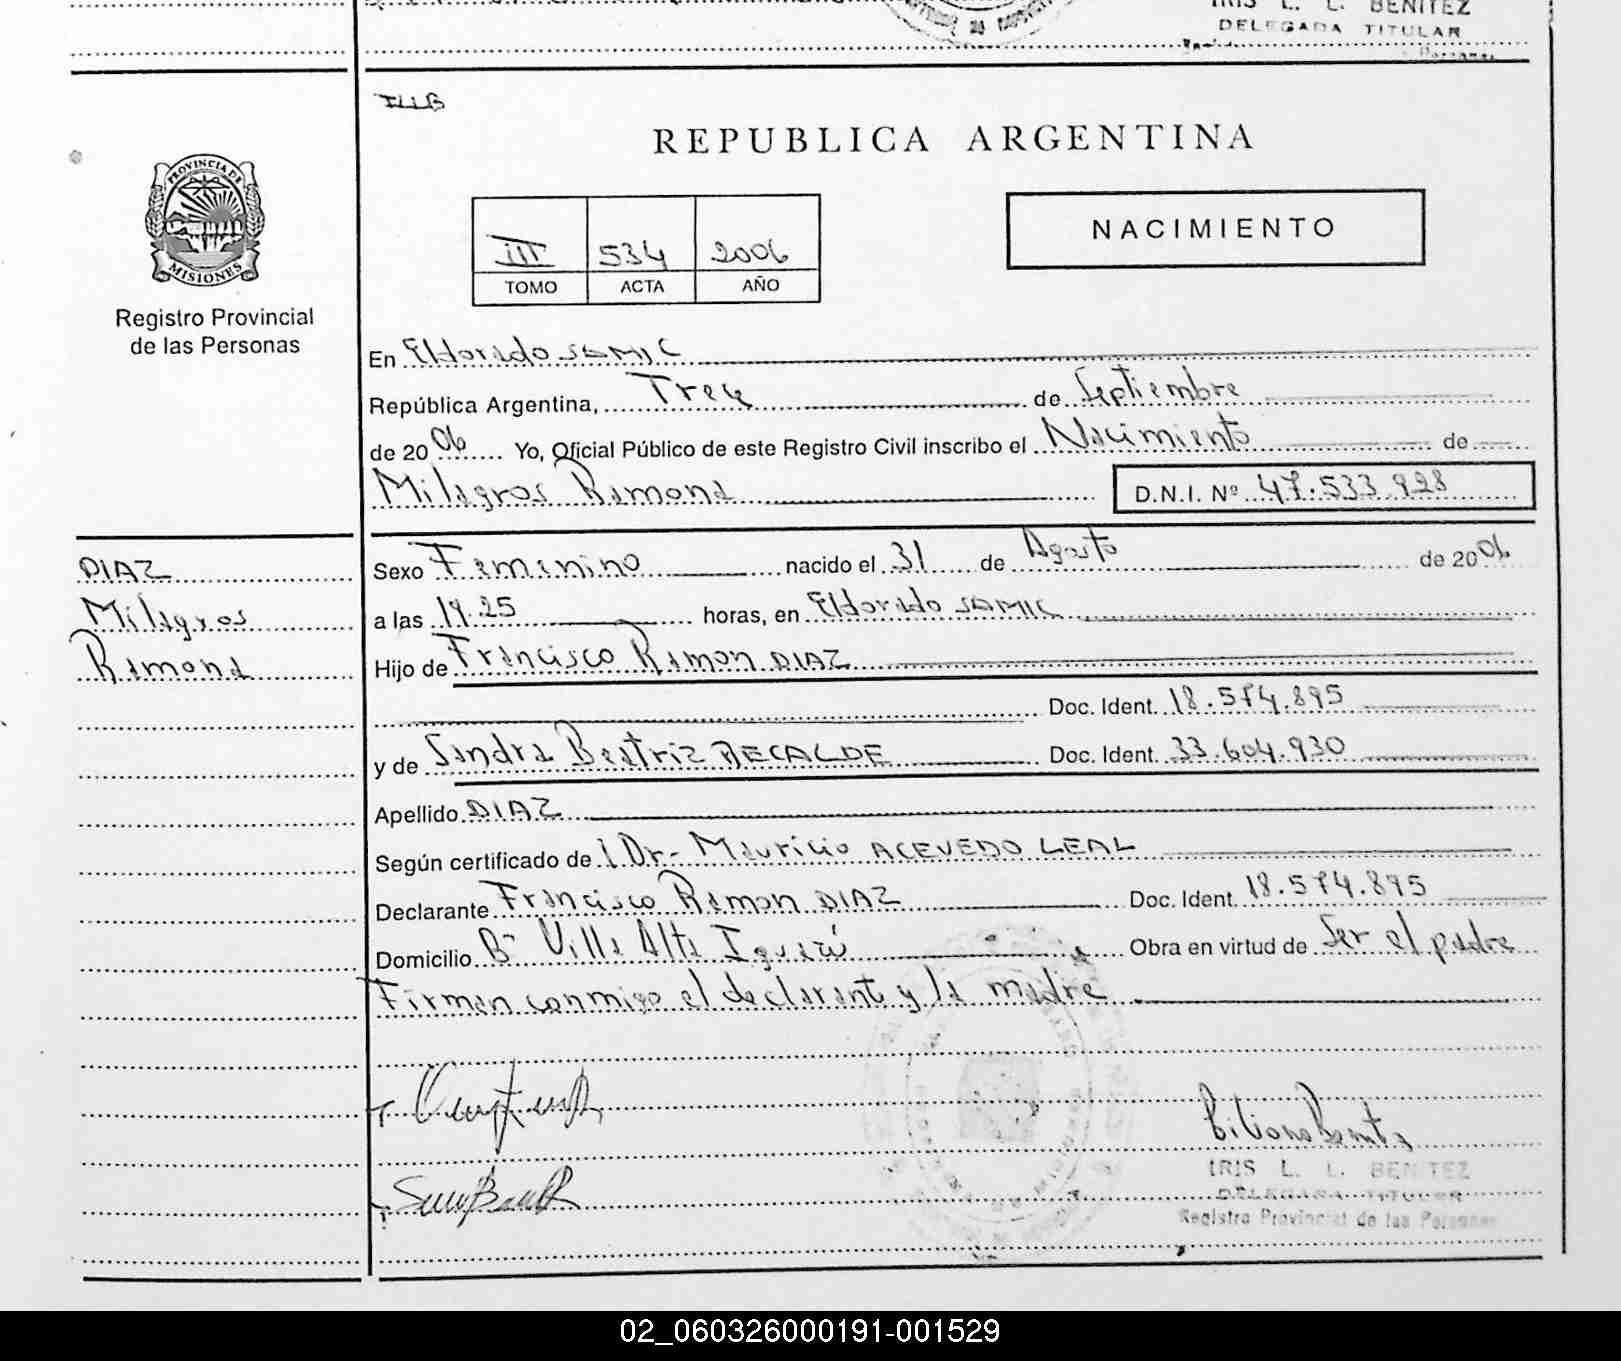 IRIS L. L. BENITEZ
DELEGADA TITULAR
REPUBLICA ARGENTINA
PROVINCIA DE
MISIONES
Registro Provincial
de las Personas
III 534 2006
TOMO ACTA AÑO
NACIMIENTO
En Eldorado SAMIC
República Argentina, Tres de Septiembre
de 2006 Yo, Oficial Público de este Registro Civil inscribo el Nacimiento de
Milagros Ramona D.N.I. Nº 47.533.928
DIAZ
Milagros
Ramona
Sexo Femenino nacido el 31 de Agosto de 2006
a las 19.25 horas, en Eldorado SAMIC
Hijo de Francisco Ramon DIAZ
Doc. Ident. 18.574.895
y de Sandra Beatriz RECALDE Doc. Ident. 33.604.930
Apellido DIAZ
Según certificado de Dr. Mauricio ACEVEDO LEAL
Declarante Francisco Ramon DIAZ Doc. Ident. 18.574.895
Domicilio Bº Villa Alta Iguazú Obra en virtud de Ser el padre
Firman conmigo el declarante y la madre
IRIS L. L. BENITEZ
DELEGADA TITULAR
Registro Provincial de las Personas
02_060326000191-001529